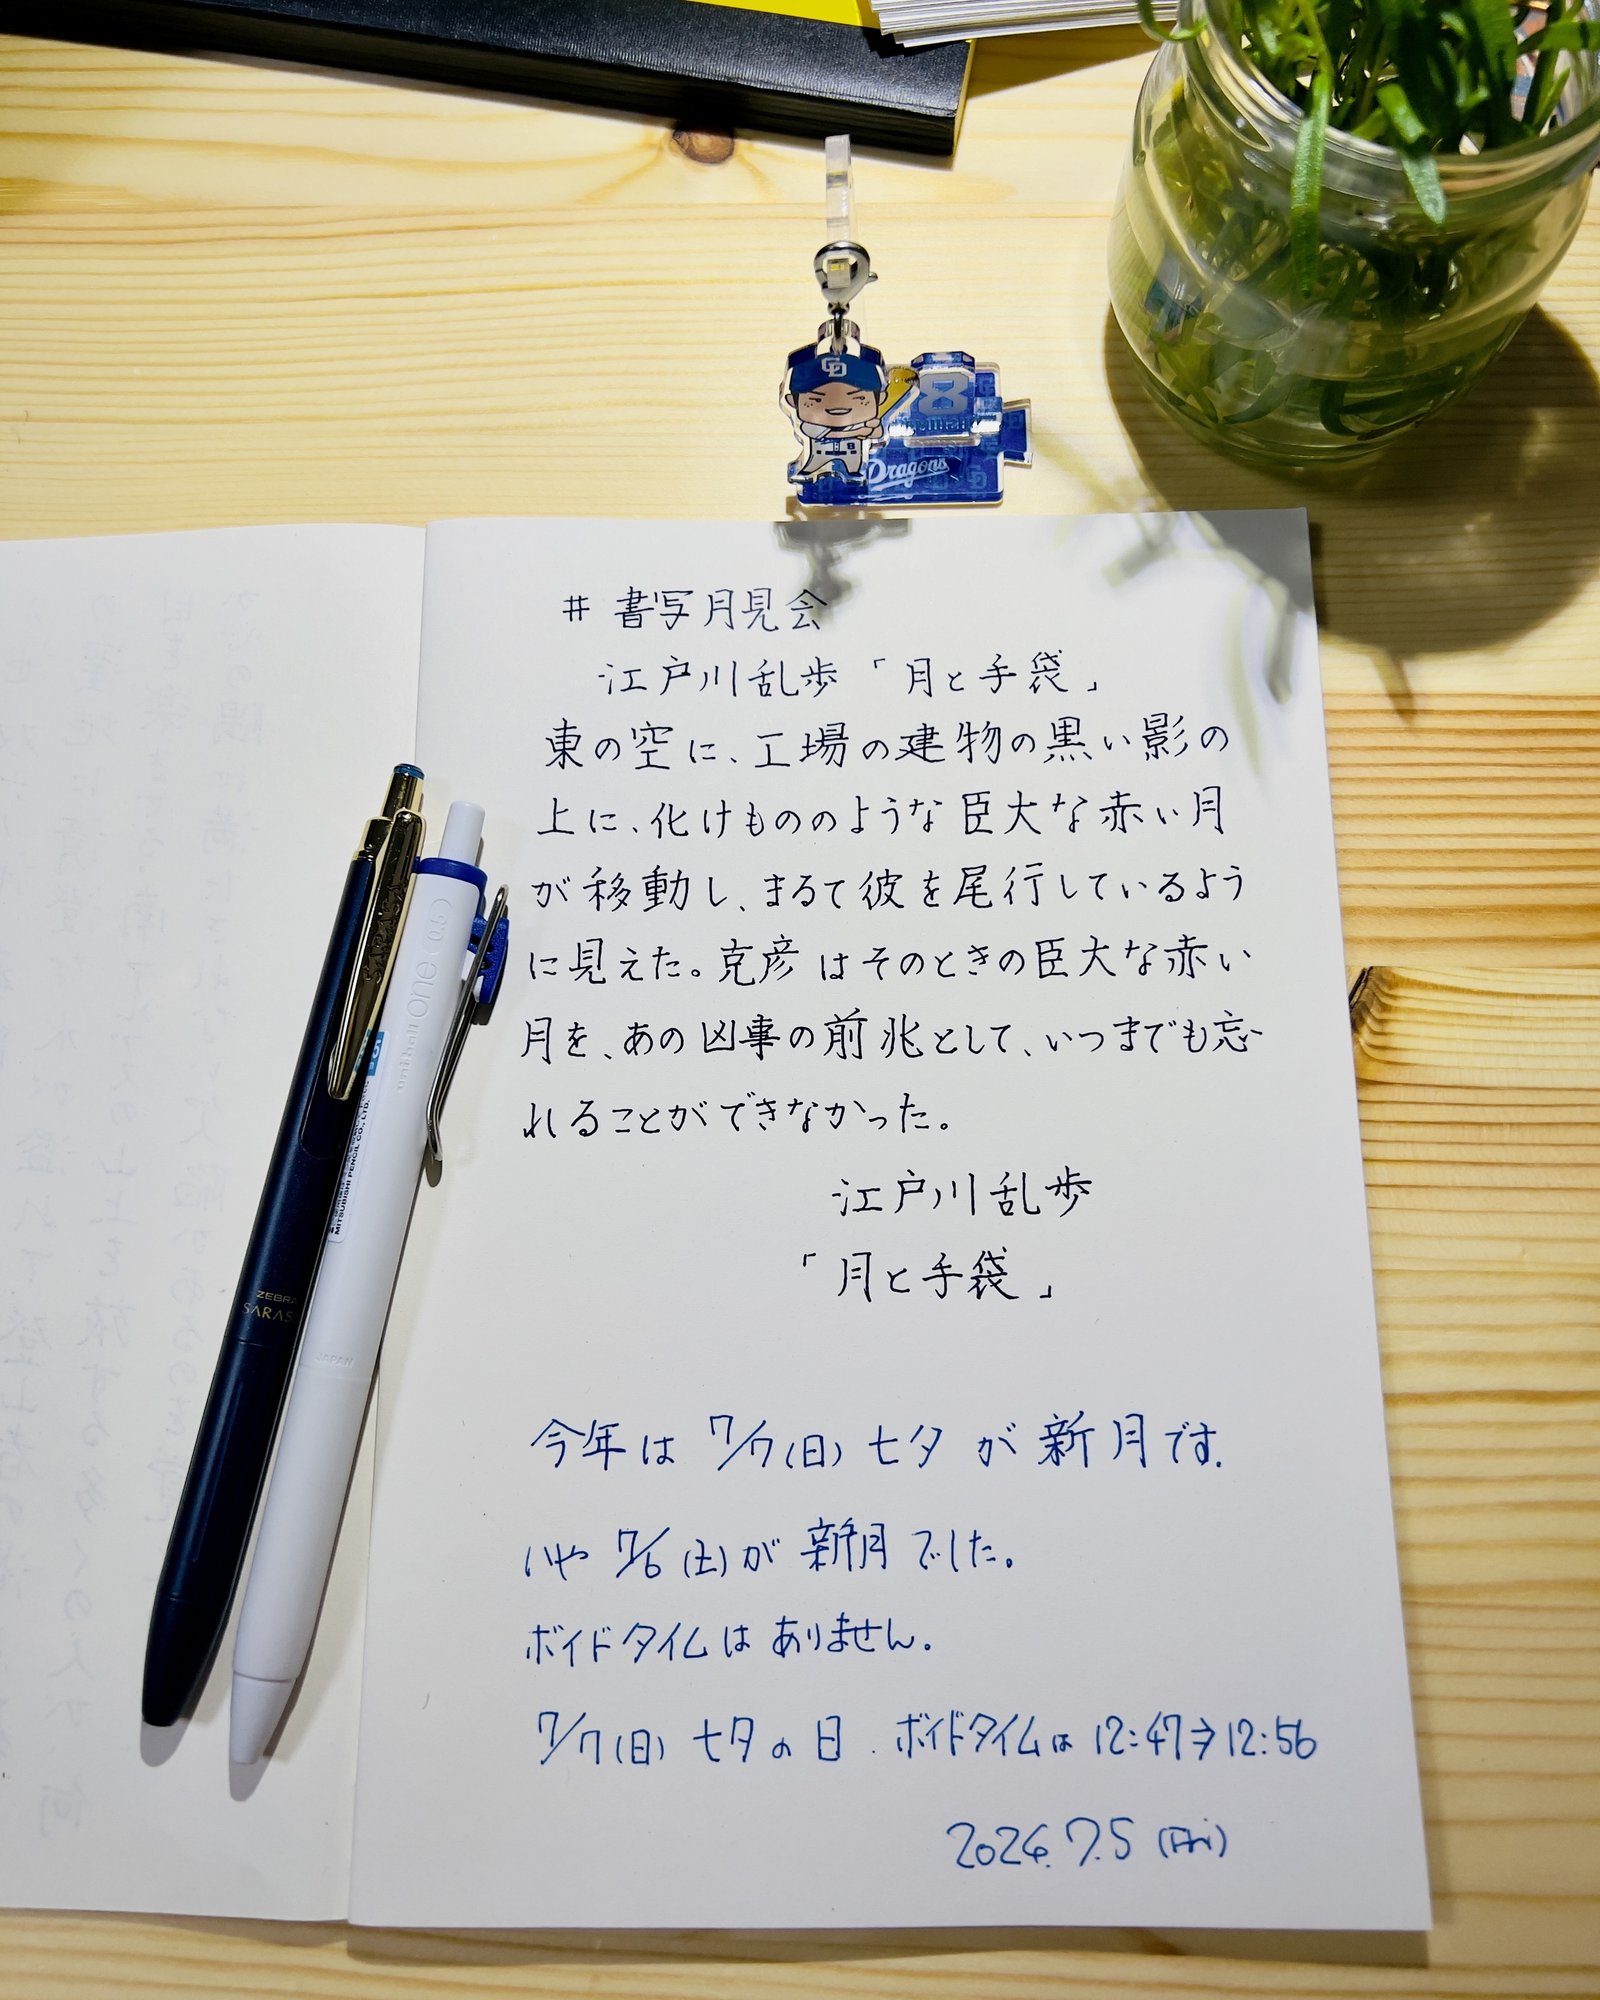 # 書写月見会
江戸川乱歩「月と手袋」
東の空に、工場の建物の黒い影の
上に、化けもののような臣大な赤い月
が移動し、まるで彼を尾行しているよう
に見えた。克彦はそのときの臣大な赤い
月を、あの凶事の前兆として、いつまでも忘
れることができなかった。
江戸川乱歩
「月と手袋」
今年は 7/7(日) 七夕 が 新月です.
いや 7/6 (土)が 新月でした。
ボイドタイムは ありません。
7/7(日) 七夕の日. ボイドタイムは 12:47→12:56
2024. 7. 5 (Fri)
CD
8
8
Dragons
uni-ball one 0.5
MITSUBISHI PENCIL CO., LTD.
JAPAN
ZEBRA
SARASA